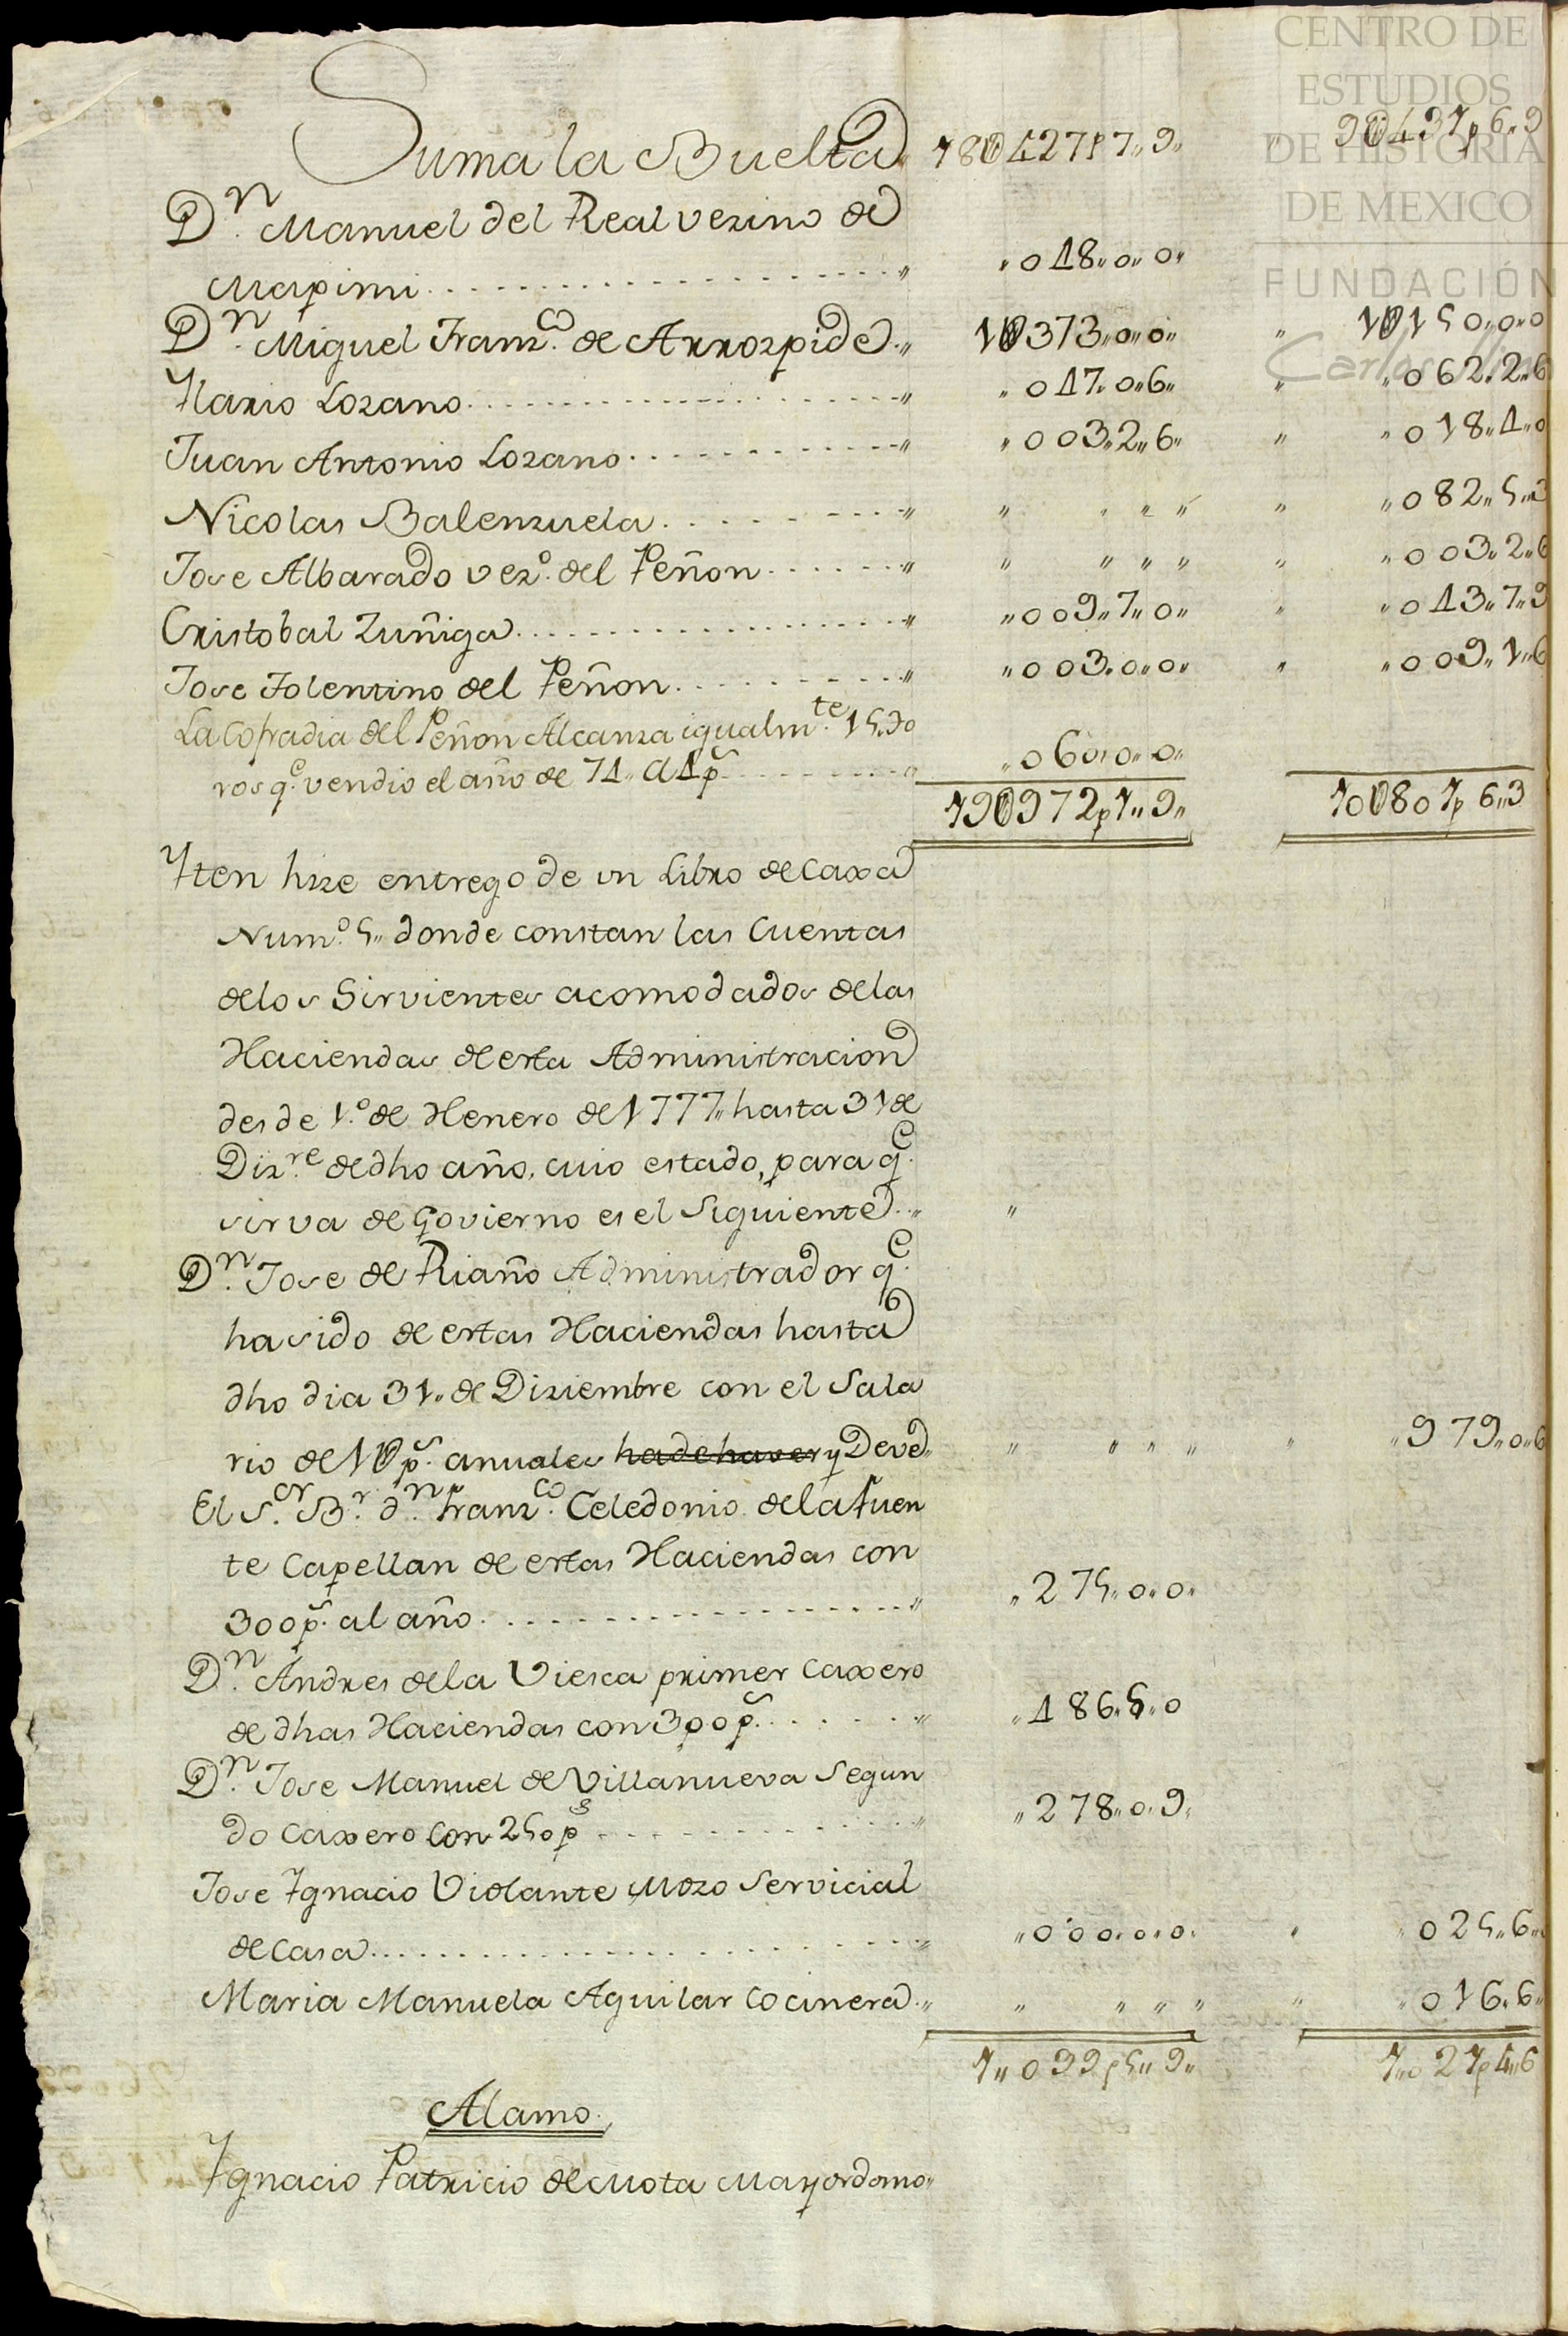 CENTRO DE
ESTUDIOS
DE HISTORIA
DE MEXICO
FUNDACIÓN
Suma la Buelta 18U427p7,,9,, ,, 9U437p6,,9
Dn. Manuel del Real vezino de
Mapimi ,, ,,018,,0,,0,,
Dn. Miguel Franzco. de Arrozpide ,, 1U373,,0,,0,, ,, 1U150,,0,,0
Ylario Lozano ,, ,,017,,0,,6,, ,, ,,062,,2,,6
Juan Antonio Lozano ,, ,,003,,2,,6,, ,, ,,018,,4,,0
Nicolas Balenzuela ,, ,, ,, ,, ,, ,, ,,082,,5,,3
Jose Albarado vezo. del Peñon ,, ,, ,, ,, ,, ,, ,,003,,2,,6
Cristobal Zuñiga ,, ,,009,,7,,0,, ,, ,,013,,7,,9
Jose Tolentino del Peñon ,, ,,003,,0,,0,, ,, ,,009,,1,,6
La Cofradia del Peñon Alcanza igualmte. 15,,to
ros qe. vendio el año de 74,, a 4ps ,, ,,060,,0,,0,,
19U972p1,,9,, 10U801p6,,3
Yten hize entrego de un Libro de Caxa
Numo. 5,, donde constan las Cuentas
delos Sirvientes acomodados delas
Haciendas de esta Administracion
desde 1o. de Henero de 1777,, hasta 31 de
Dizre. de dho año, cuio estado, para qe.
sirva de Govierno es el Siguiente ,, ,,
Dn. Jose de Riaño Administrador qe.
ha sido de estas Haciendas hasta
dho dia 31,, de Diziembre con el Sala
rio de 1Ups. anuales ha de haver y Deve ,, ,, ,, ,, ,, ,, ,,979,,0,,6
El Sor. Br. dn. Franzco. Celedonio de la Fuen
te Capellan de estas Haciendas con
300ps. al año ,, ,,275,,0,,0,,
Dn. Andres de la Viesca primer Caxero
de dhas Haciendas con 300ps. ,, ,,486,,5,,0
Dn. Jose Manuel de Villanueva Segun
do Caxero con 250ps ,, ,,278,,0,,9,,
Jose Ygnacio Violante Mozo Servicial
de Casa ,, ,,000,,0,,0,, ,, ,,025,,6,,
Maria Manuela Aguilar Cocinera ,, ,, ,, ,, ,, ,, ,,016,,6,,
1,,039p5,,9,, 1,,021p4,,6
Alamo.
Ygnacio Patricio de Mota Mayordomo,,